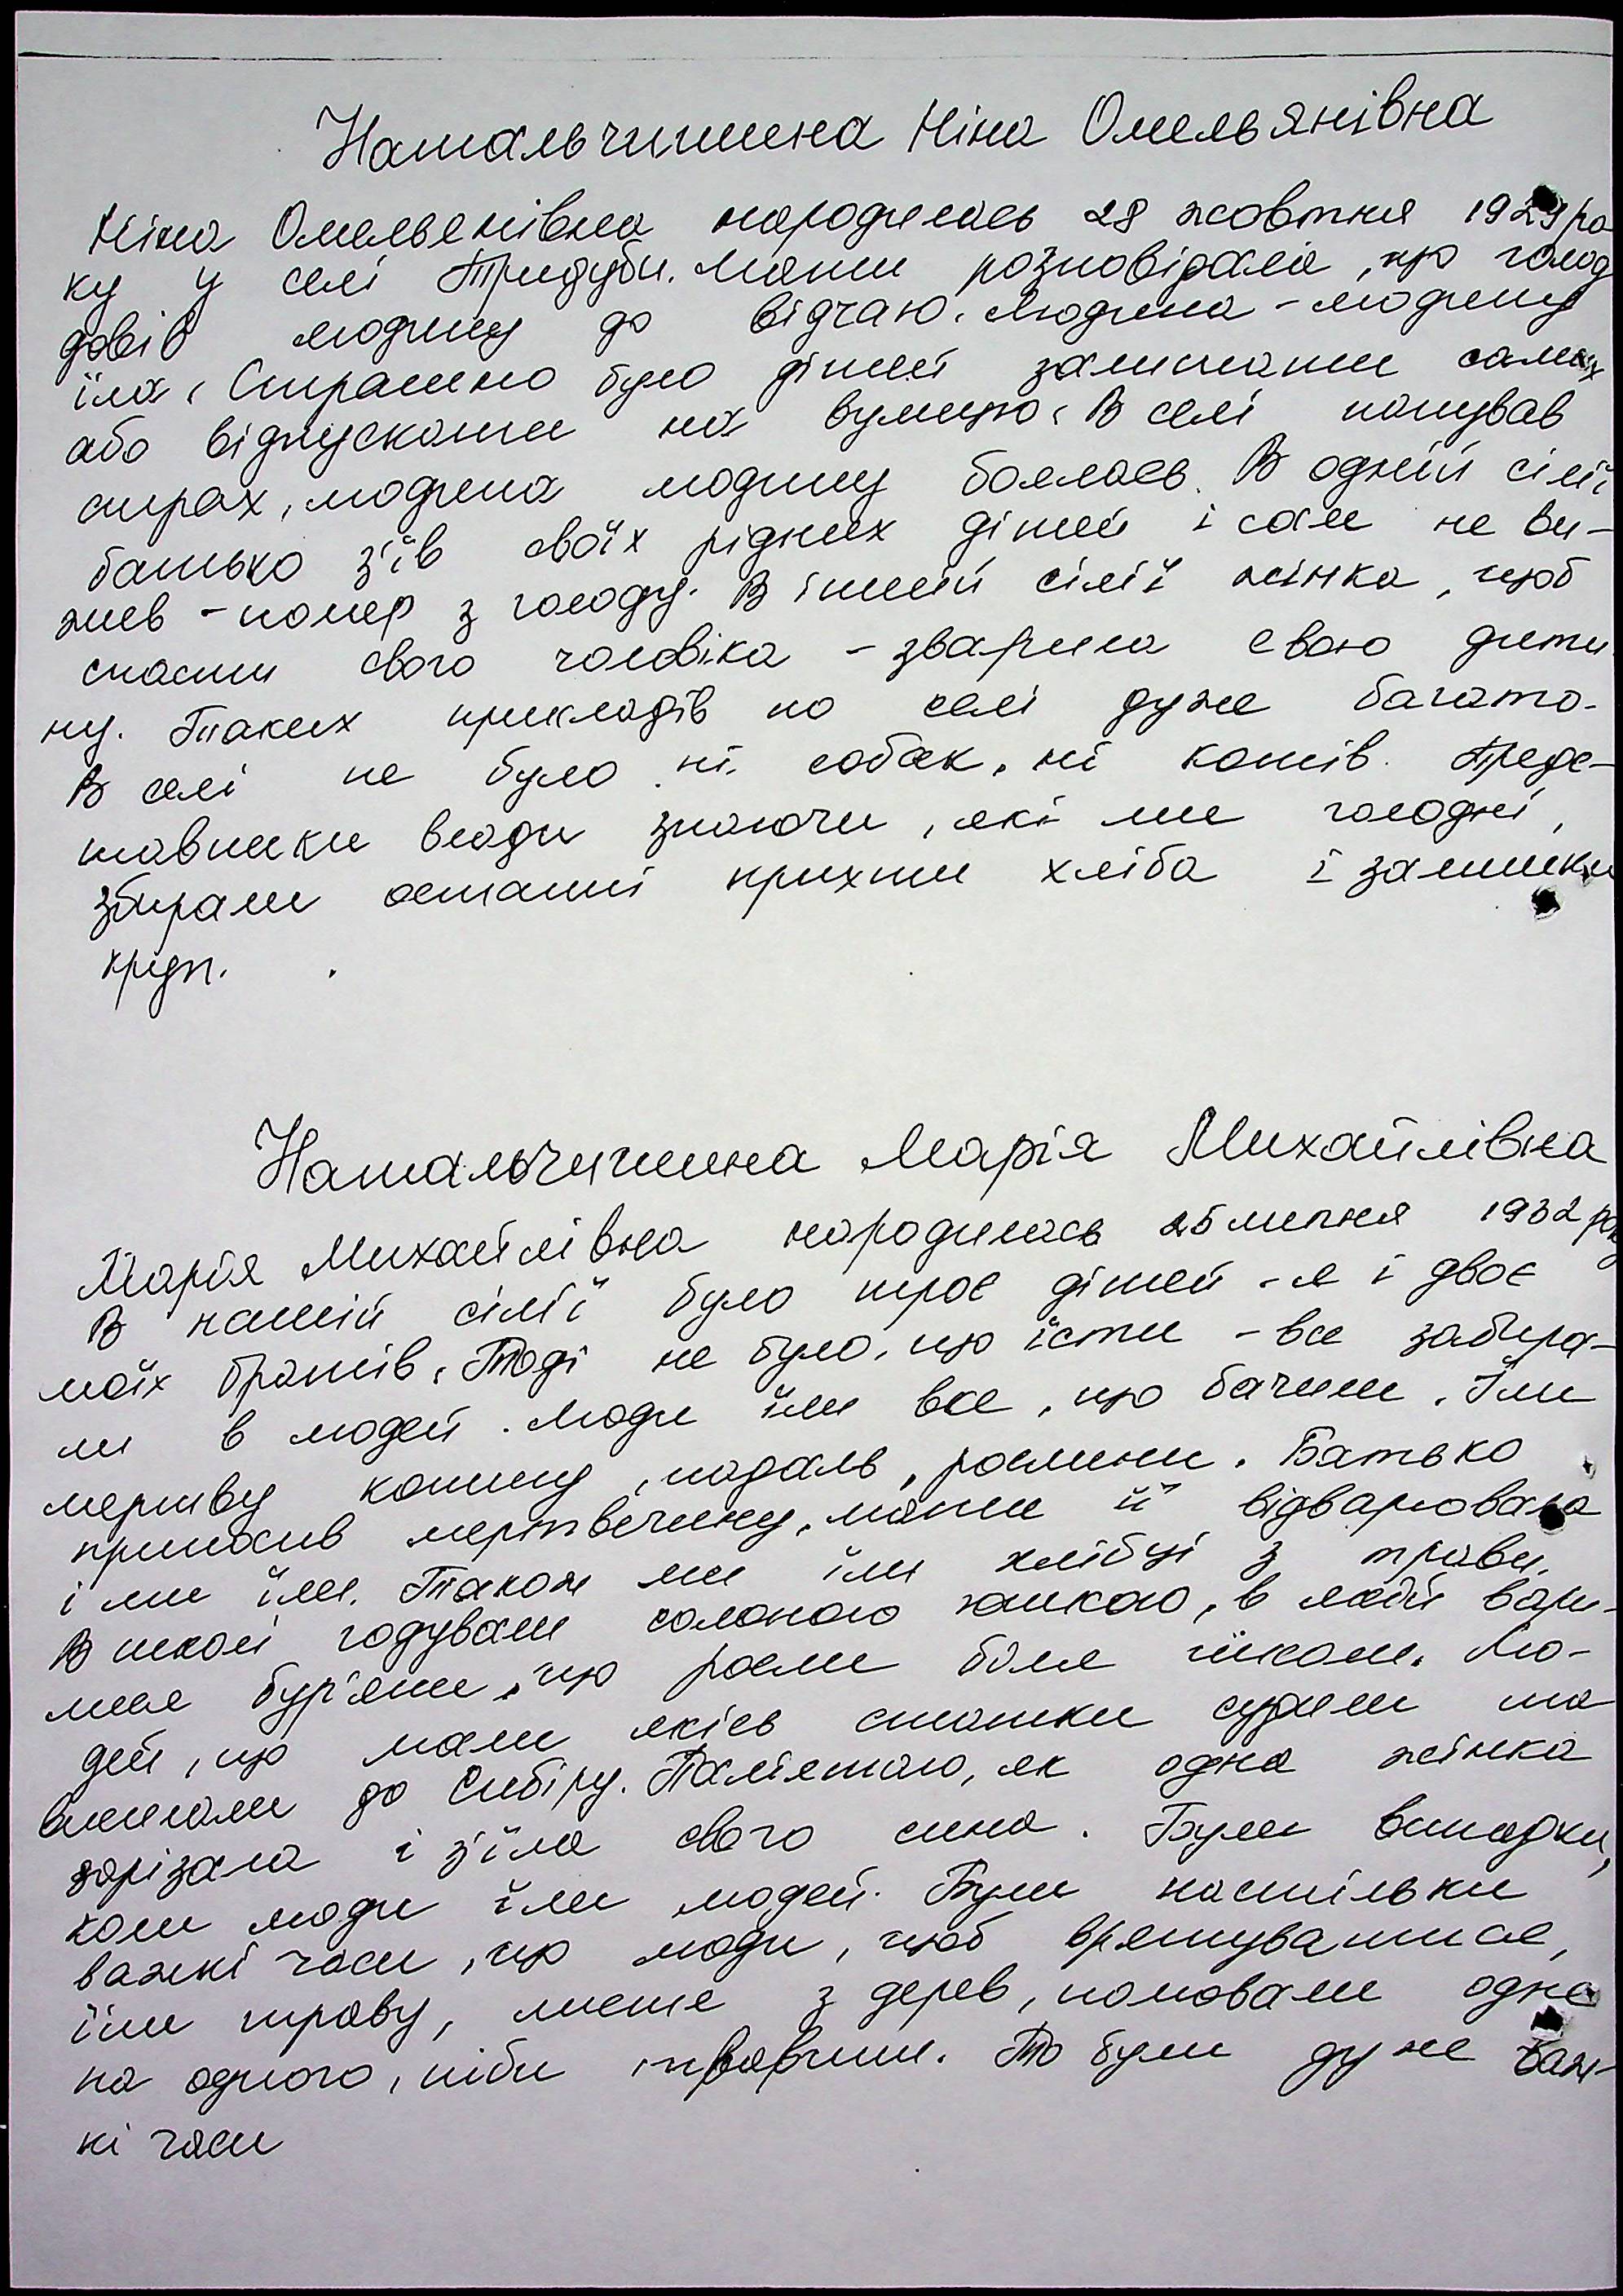 Натальчишина Ніна Омельянівна
Ніна Омельенівна народилась 28 жовтня 1929 ро
ку у селі Тридуби. Мати розповідала, що голод
довів людину до відчаю. Людина - людину
їла. Страшно було дітей залишати самих
або відпускати на вулицю. В селі панував
страх, людина людину боялась. В одній сім'ї
батько з'їв своїх рідних дітей і сам не ви-
жив - помер з голоду. В іншій сім'ї жінка, щоб
спасти свого чоловіка - зварила свою дити
ну. Таких прикладів по селі дуже багато.
В селі не було ні собак, ні котів. Предс-
тавники влади знаючи, які ми голодні,
збирали останні крихти хліба і залишки
крупи.
Натальчишина Марія Михайлівна
Марія Михайлівна народилась 25 липня 1932 року
В нашій сім'ї було троє дітей - я і двоє
моїх братів. Тоді не було, що їсти - все забира-
ли в людей. Люди їли все, що бачили. Їли
мертву конину, падаль, рослини. Батько
приносив мертвечину, мати її відварювала
і ми їли. Також ми їли хлібці з трави.
В школі годували солоною юшкою, в якій вари-
лися бур'яни, що росли біля школи. Лю-
дей, що мали якісь статки судили та
висилали до Сибіру. Пам'ятаю, як одна жінка
зарізала і з'їла свого сина. Були випадки,
коли люди їли людей. Були настільки
важкі часи, що люди, щоб врятуватися,
їли траву, листя з дерев, полювали одне
на одного, ніби тварини. То були дуже важ-
кі часи